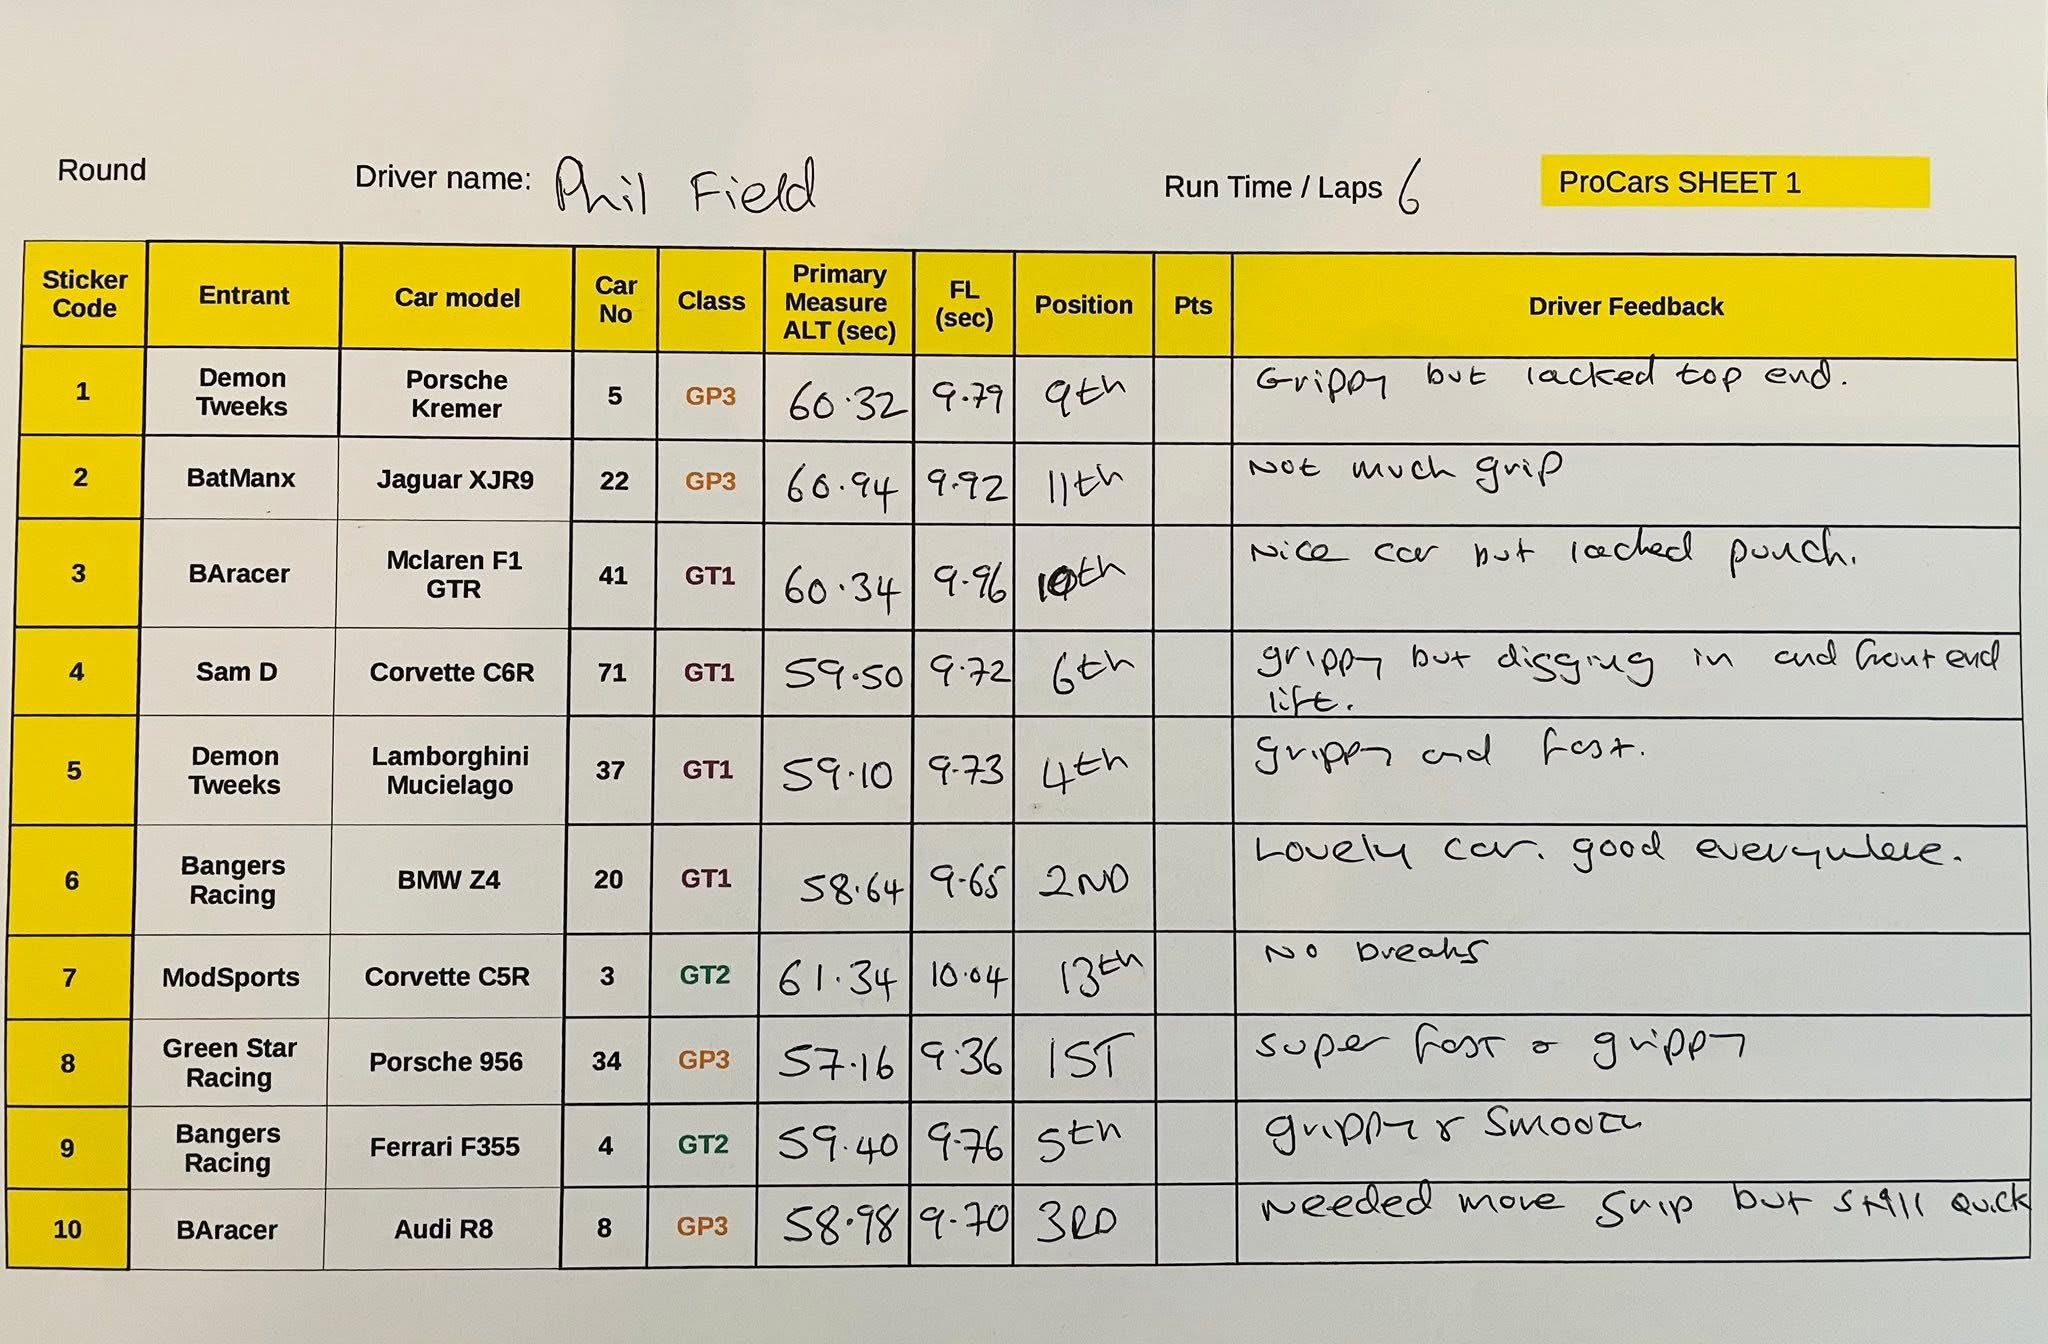 Round Driver name: Phil Field Run Time / Laps 6 ProCars SHEET 1
Sticker Code Entrant Car model Car No Class Primary Measure ALT (sec) FL (sec) Position Pts Driver Feedback
1 Demon Tweeks Porsche Kremer 5 GP3 60.32 9.79 9th Grippy but lacked top end.
2 BatManx Jaguar XJR9 22 GP3 60.94 9.92 11th Not much grip
3 BAracer Mclaren F1 GTR 41 GT1 60.34 9.96 10th Nice car but lacked punch.
4 Sam D Corvette C6R 71 GT1 59.50 9.72 6th grippy but digging in and front end
lift.
5 Demon Tweeks Lamborghini Mucielago 37 GT1 59.10 9.73 4th grippy and fast.
6 Bangers Racing BMW Z4 20 GT1 58.64 9.65 2ND Lovely car. good everywhere.
7 ModSports Corvette C5R 3 GT2 61.34 10.04 13th No breaks
8 Green Star Racing Porsche 956 34 GP3 57.16 9.36 1ST super fast & grippy
9 Bangers Racing Ferrari F355 4 GT2 59.40 9.76 5th grippy & smooth
10 BAracer Audi R8 8 GP3 58.98 9.70 3RD Needed more grip but still quick